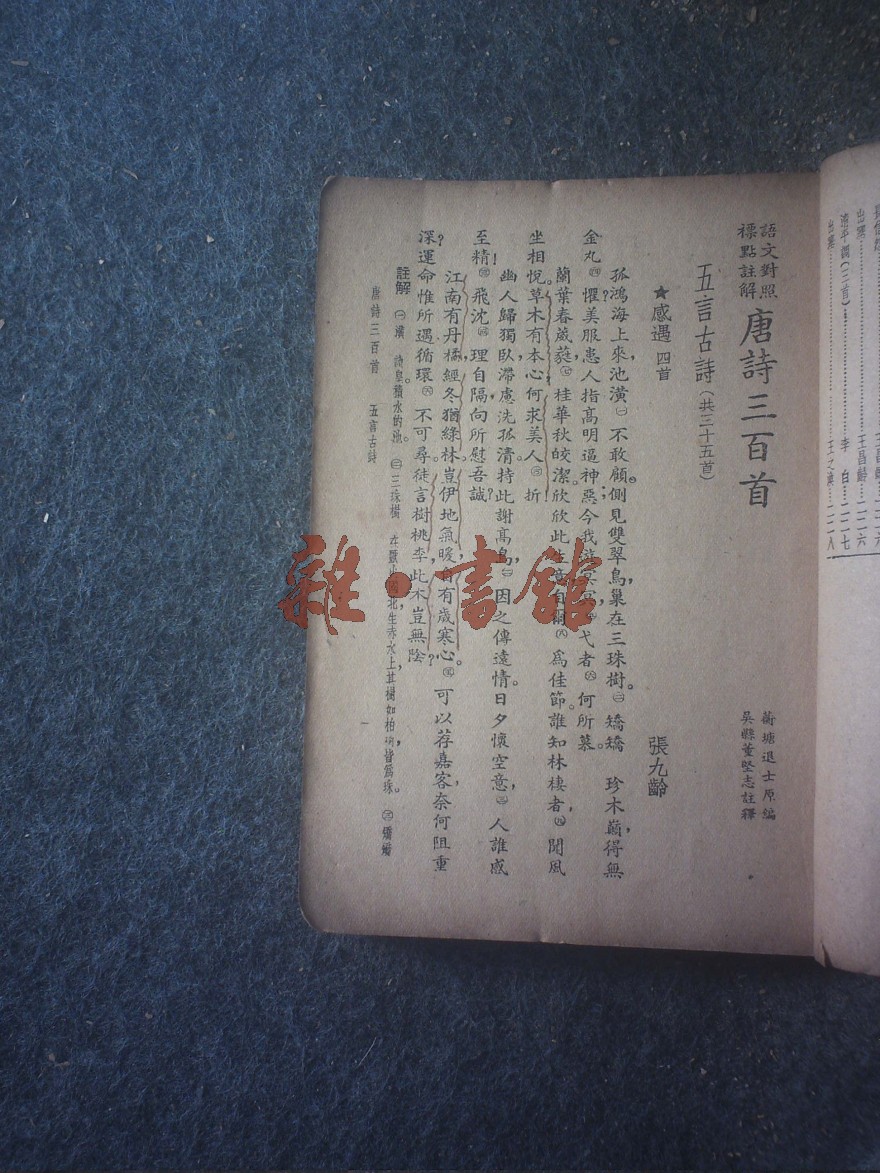 語文對照
標點註解
唐詩三百首
蘅塘退士原編
吳縣董堅志註釋
五言古詩(共三十五首)
★感遇 四首
張九齡
孤鴻海上來,池潢㊀不敢顧;側見雙翠鳥,巢在三珠樹。㊁矯矯 珍木巔,得無
金丸㊃懼?美服患人指,高明逼神惡。今我遊冥冥,㊄弋者㊅何所慕。
蘭葉春葳蕤,㊆桂華秋皎潔。欣欣此生意,自爾㊇爲佳節。誰知林棲者,㊈聞風
坐相悅。草木有本心,何求美人㊃折!
幽人歸獨臥,滯慮洗孤清。持此謝高鳥,㊁因之傳遠情。日夕懷空意,㊂人誰感
至精!㊂飛沈㊃理自隔,向所慰吾誠?
江南有丹橘,經冬猶綠林。豈伊地氣暖,自有歲寒心。㊄可以荐嘉客,奈何阻重
深?運命惟所遇,循環㊅不可尋。徒言樹桃李,此木豈無陰?
註解 ㊀潢 積水的池。㊁三珠樹 北,生赤水上,其樹如柏,皆爲珠。㊂矯矯
唐詩三百首 五言古詩
一
出塞
王昌齡 一二六
清平調(三首)
李白 一二七
出塞
王之渙 一二八
雜·書館